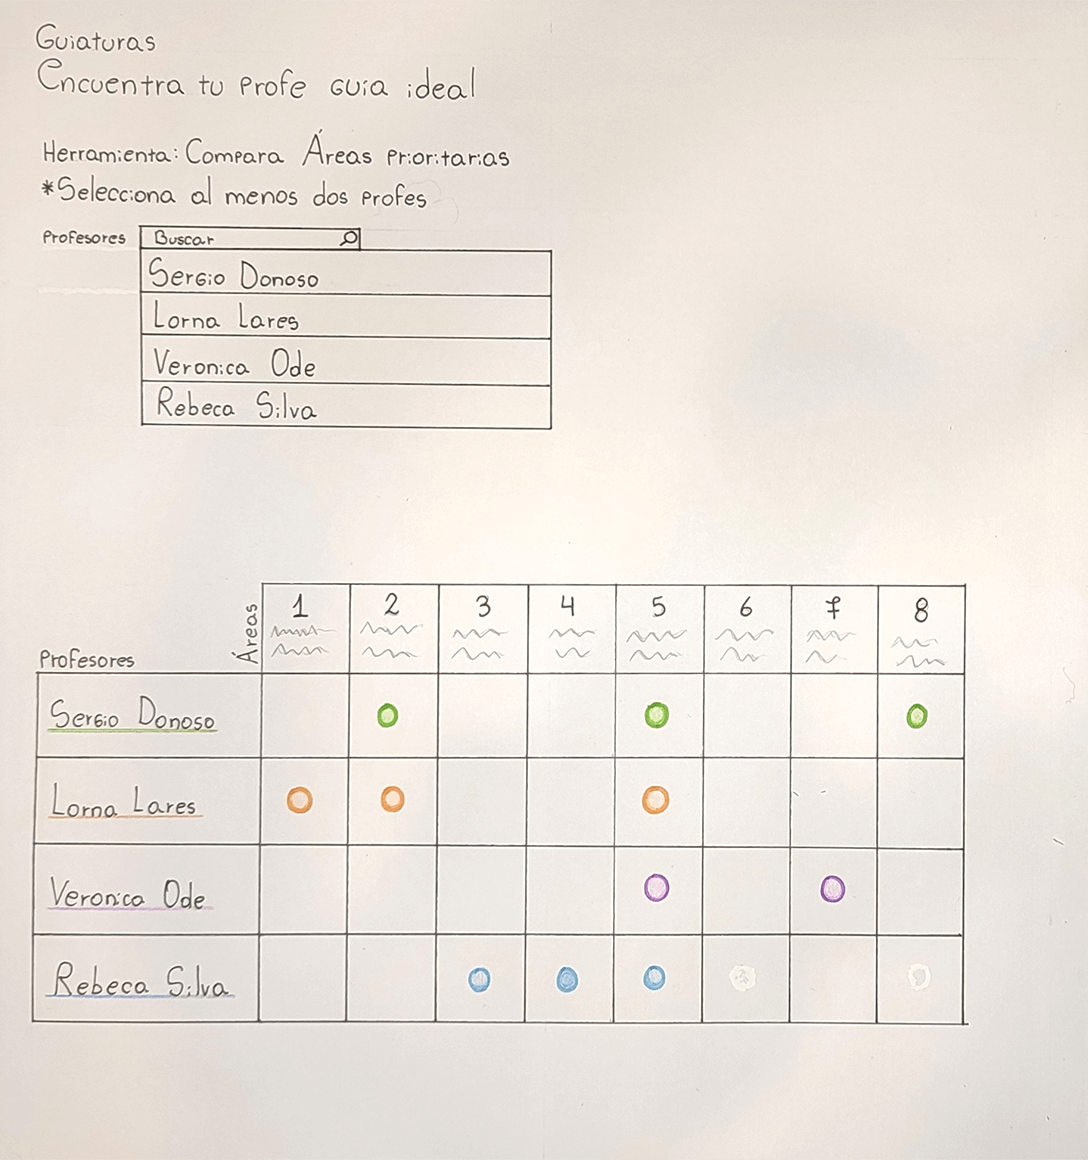 Guiaturas
Encuentra tu profe guía ideal
Herramienta: Compara Áreas prioritarias
*Selecciona al menos dos profes
Profesores
Buscar
Sergio Donoso
Lorna Lares
Veronica Ode
Rebeca Silva
Profesores
Áreas
1 2 3 4 5 6 7 8
Sergio Donoso
Lorna Lares
Veronica Ode
Rebeca Silva